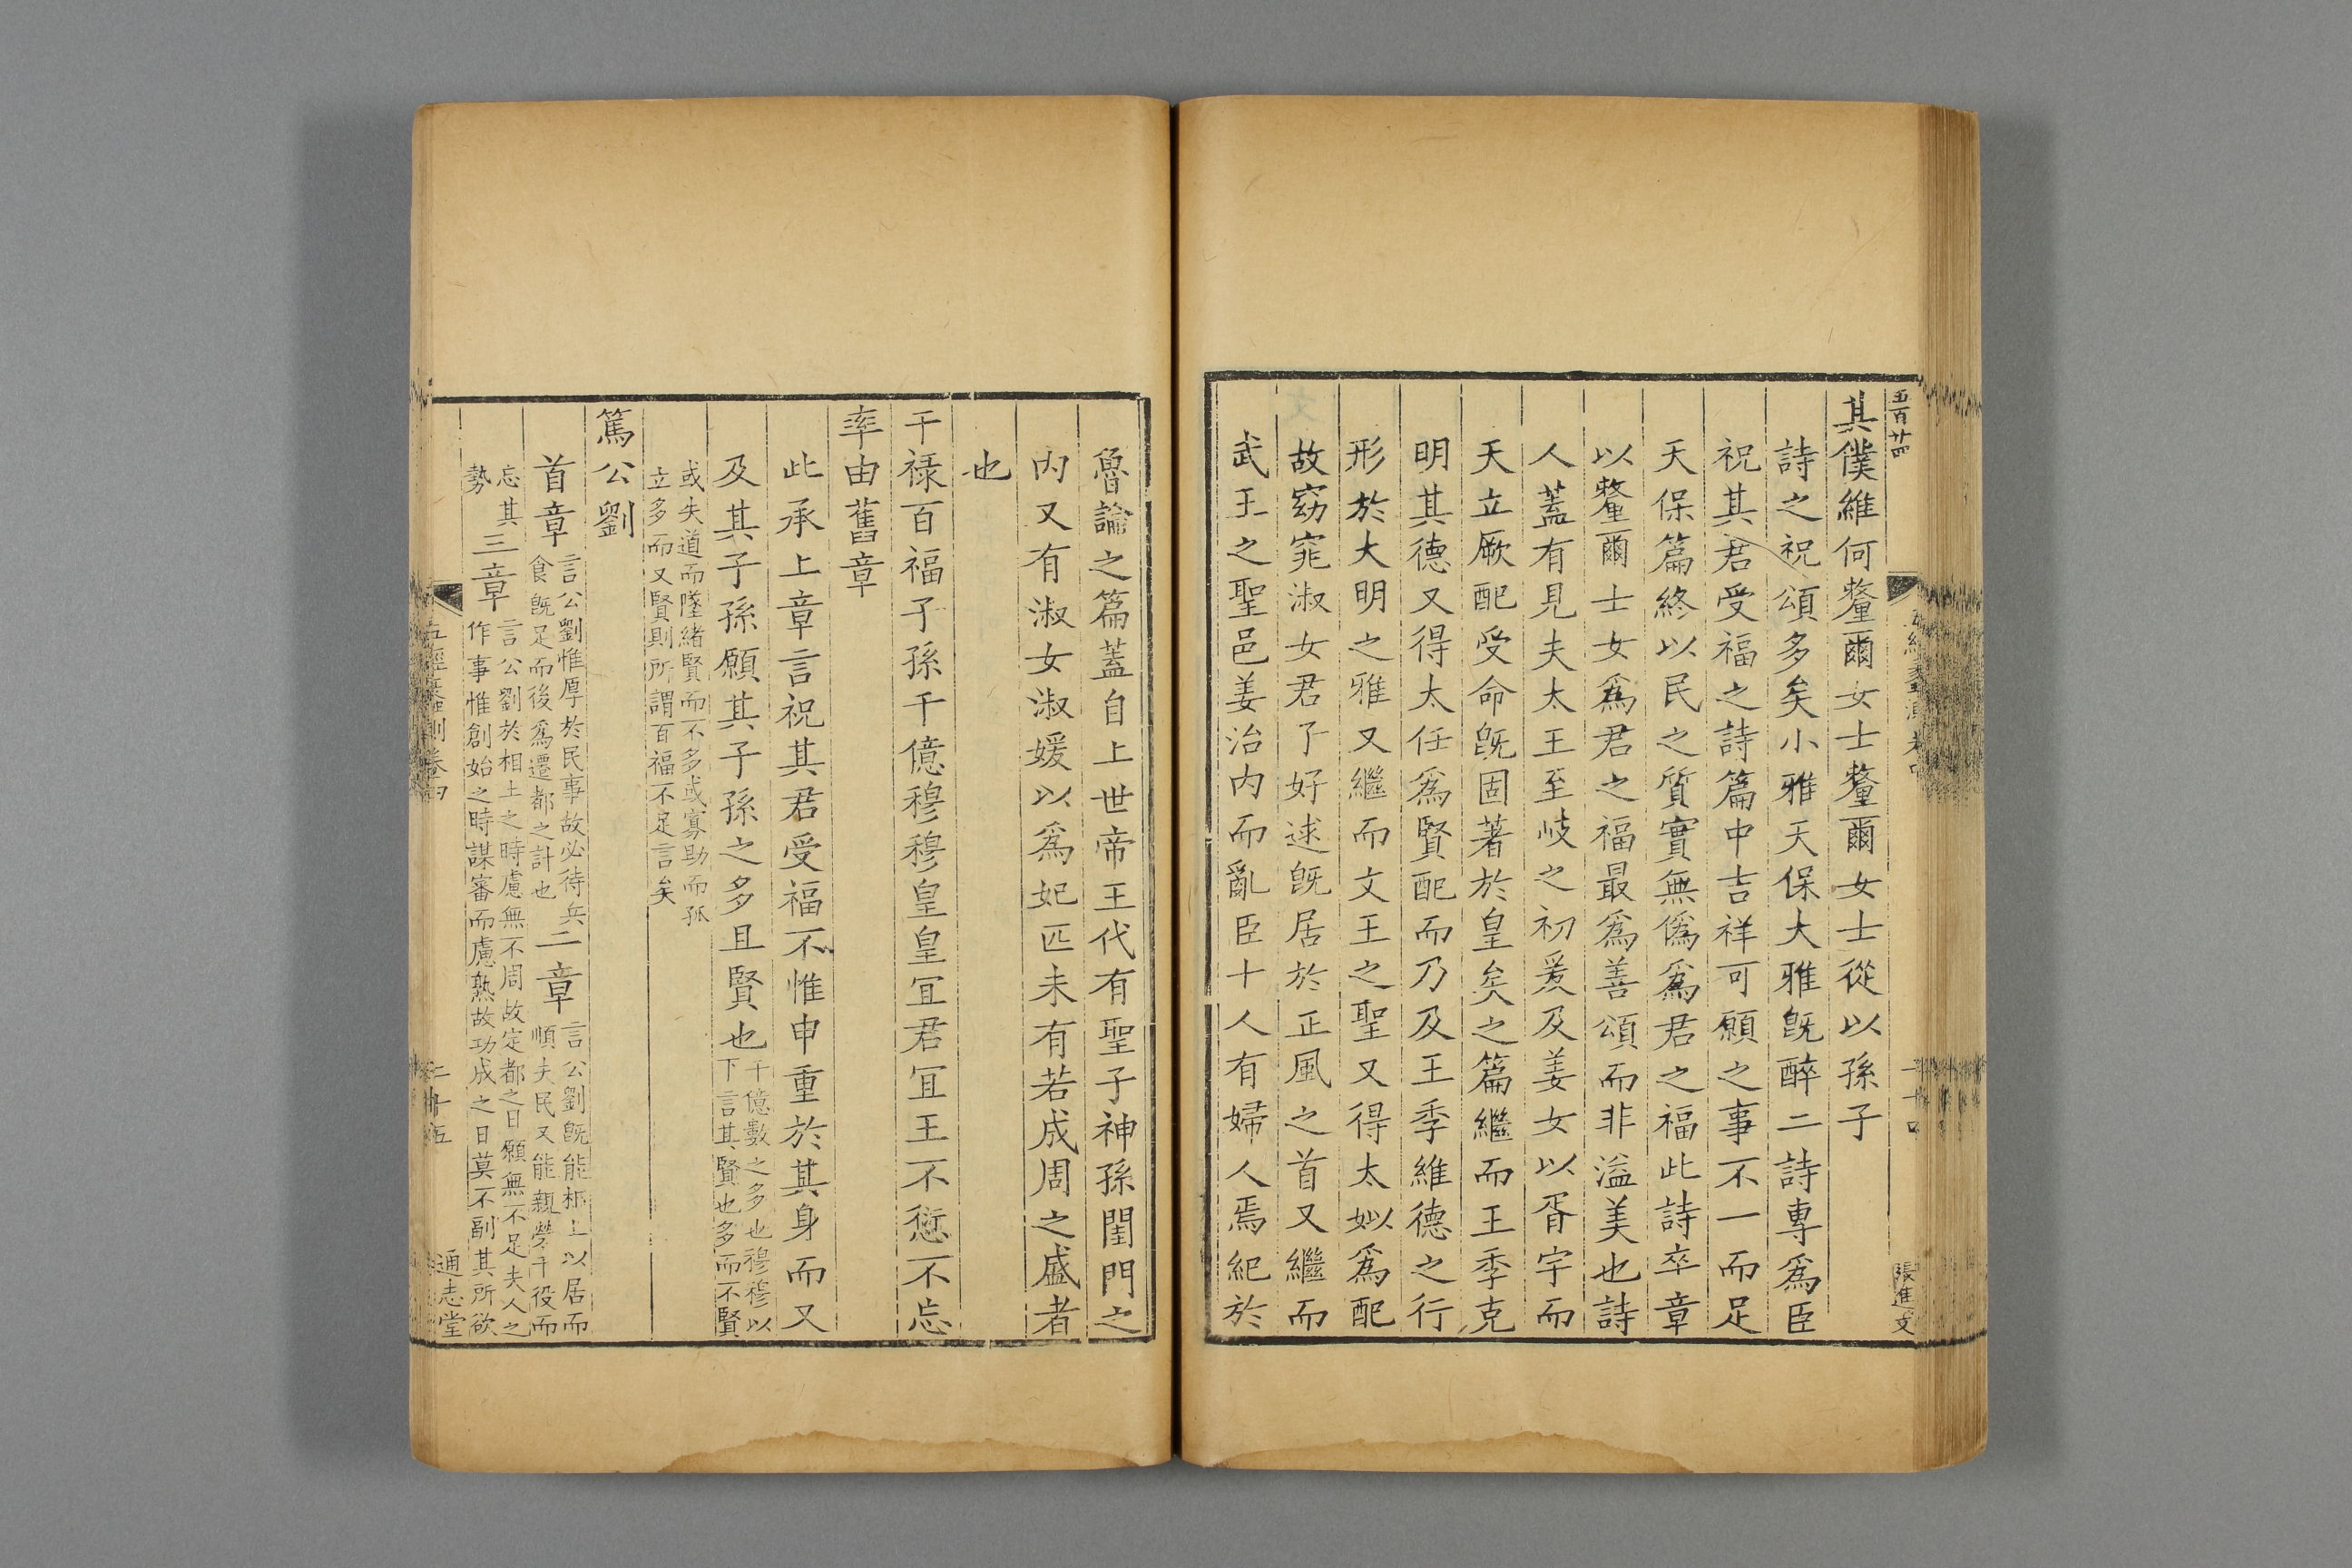 五百廿四
張進文
其僕維何釐爾女士釐爾女士從以孫子
詩之祝頌多矣小雅天保大雅既醉二詩專爲臣
祝其君受福之詩篇中吉祥可願之事不一而足
天保篇終以民之質實無僞爲君之福此詩卒章
以釐爾士女爲君之福最爲善頌而非溢美也詩
人蓋有見夫太王至岐之初爰及姜女以胥宇而
天立厥配受命既固著於皇矣之篇繼而王季克
明其德又得太任爲賢配而乃及王季維德之行
形於大明之雅又繼而文王之聖又得太姒爲配
故窈窕淑女君子好逑既居於正風之首又繼而
武王之聖邑姜治内而亂臣十人有婦人焉紀於
魯論之篇蓋自上世帝王代有聖子神孫閨門之
内又有淑女淑媛以爲妃匹未有若成周之盛者
也
干禄百福子孫千億穆穆皇皇宜君宜王不愆不忘
率由舊章
此承上章言祝其君受福不惟申重於其身而又
及其子孫願其子孫之多且賢也千億數之多也穆穆以
下言其賢也多而不賢
或失道而墜緒賢而不多或寡助而孤
立多而又賢則所謂百福不足言矣
篤公劉
首章言公劉惟厚於民事故必待兵
食既足而後爲遷都之計也
二章言公劉既能相土以居而
順夫民又能親勞千役而
忘其
勢
三章言公劉於相土之時慮無不周故定都之日願無不足夫人之
作事惟創始之時謀審而慮熟故功成之日莫不副其所欲
五經蠡測卷四
二十五
通志堂